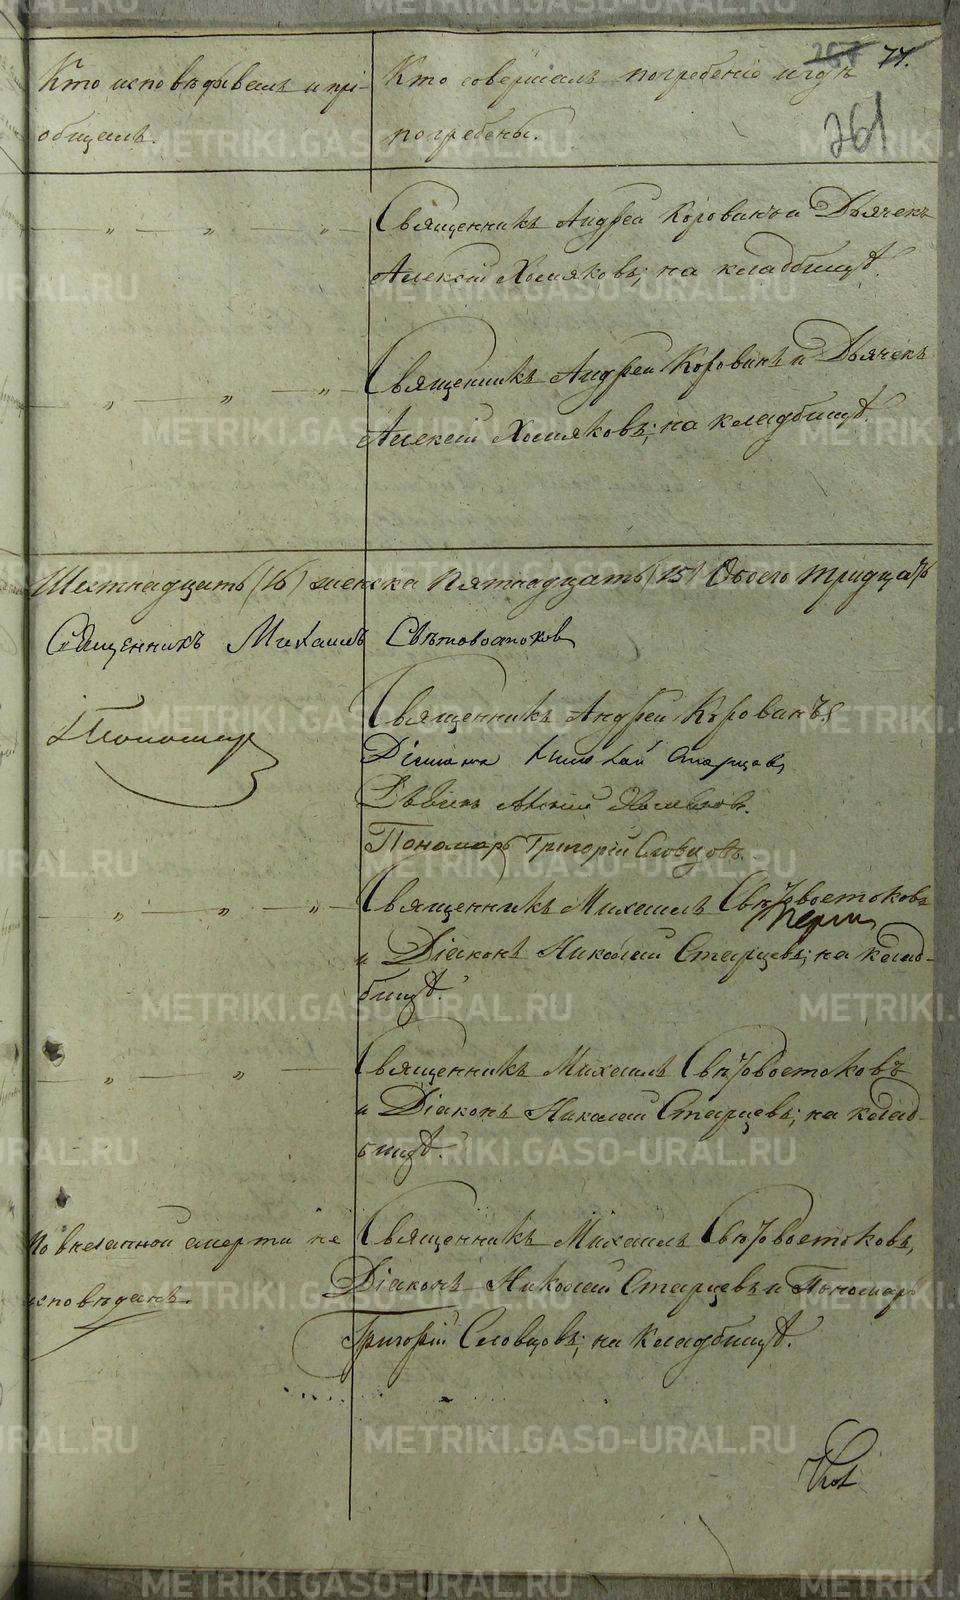 257 77.
261
Кто исповѣдывалъ и прі-
общалъ.
Кто совершалъ погребеніе и гдѣ
погребены.
Священникъ Андрей Корованъ и Дьячекъ
Алексій Хомяковъ; на кладбищѣ.
Священникъ Андрей Корованъ и Дьячекъ
Алексій Хомяковъ; на кладбищѣ.
Шестнадцать (16) женска Пятнадцать (15) Обоего тридца
Священникъ Михаилъ Свѣтовостоковъ
Пономарь
Священникъ Андрей Корованъ
Діаконъ Николай Старцевъ
Алексій Хомяковъ.
Пономарь Григорій Словцовъ.
Священникъ Михаилъ Свѣтовостоковъ
и Діаконъ Николай Старцевъ; на клад-
бищѣ.
Священникъ Михаилъ Свѣтовостоковъ
и Діаконъ Николай Старцевъ; на клад-
бищѣ.
По внезапной смерти не
исповѣданъ.
Священникъ Михаилъ Свѣтовостоковъ,
Діаконъ Николай Старцевъ и Пономарь
Григорій Словцовъ; на кладбищѣ.
METRIKI.GASO-URAL.RU